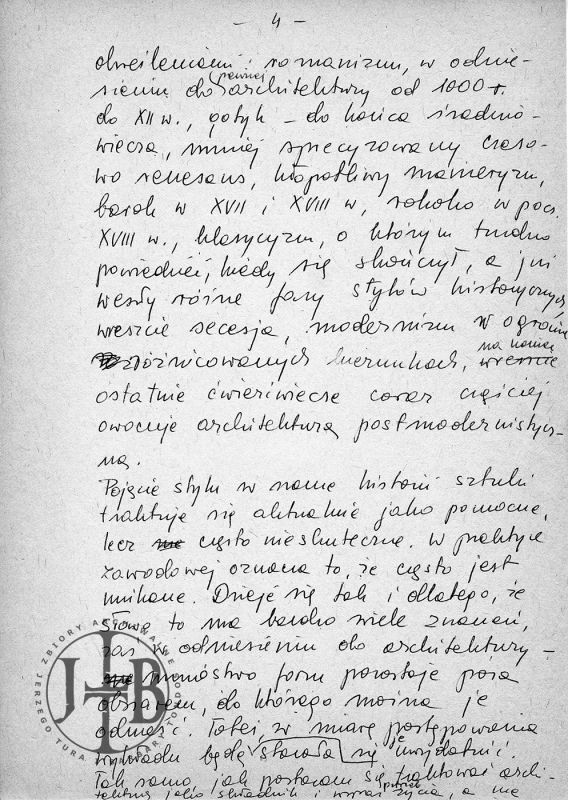 – 4 –
określeniami: romanizm, w odnie-
sieniu do pewnej architektury od 1000 r.
do XII w., gotyk – do końca średnio-
wiecza, mniej sprecyzowany czaso-
wo renesans, kłopotliwy manieryzm,
barok w XVII i XVIII w, rokoko w poł.
XVIII w., klasycyzm, o którym trudno
powiedzieć, kiedy się skończył, a już
weszły różne fazy stylów historycznych,
wreszcie secesja, modernizm w ogromnie
zróżnicowanych kierunkach, na koniec wreszcie
ostatnie ćwierćwiecze coraz częściej
owocuje architekturą postmodernistycz-
ną.
Pojęcie stylu w nauce historii sztuki
traktuje się aktualnie jako pomocne,
lecz często nieskuteczne. W praktyce
zawodowej oznacza to, że często jest
unikane. Dzieje się tak i dlatego, że
słowo to ma bardzo wiele znaczeń,
zaś w odniesieniu do architektury –
mnóstwo form pozostaje poza
obszarem, do którego można je
odnieść. Toteż, w miarę postępowania
wykładu będę starała się je uwydatnić.
Tak samo, jak postaram się traktować archi-
tekturę jako składnik i wyraz życia, a nie
JERZEGO TURA
ZBIORY
JTB